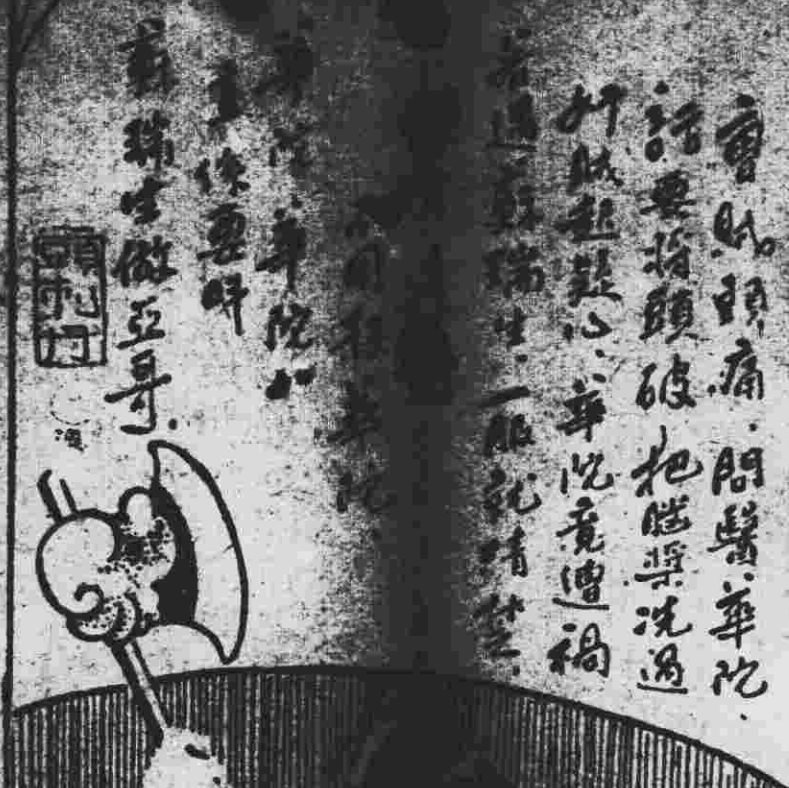 曹賊頭痛.問醫華陀.
話要將頭破,把腦漿洗過
奸賊起疑心.華陀竟遭禍
若遇蘇瑞生.一服就清楚.
華陀
華陀.華陀
你要呼
蘇瑞生做亞哥.